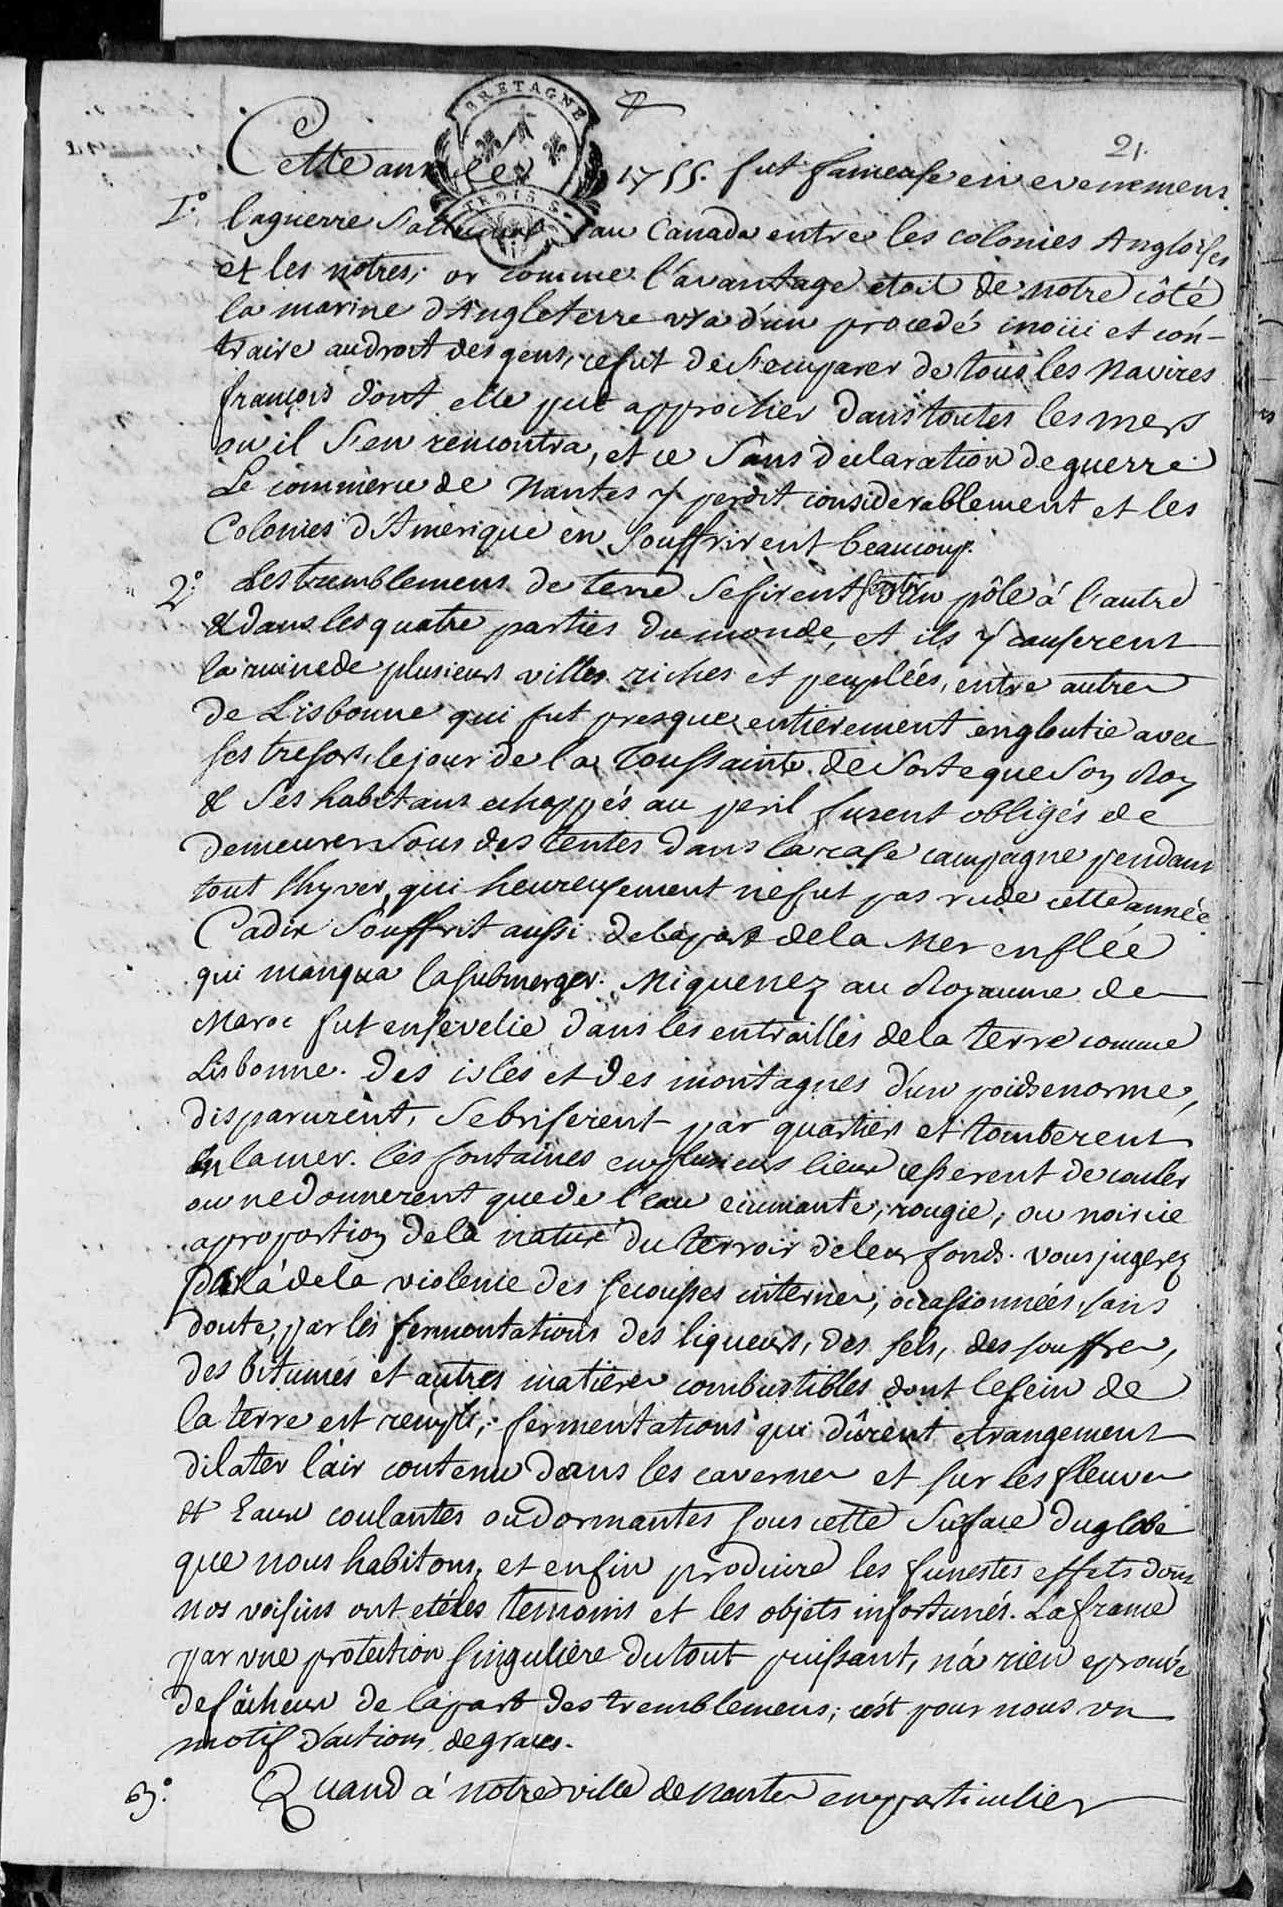 BRETAGNE
TROIS S.
21.
Cette année 1755. fut fameuse en evenemens.
1° la guerre s'alluma au Canada entre les colonies Angloises
et les notres; or comme l'avantage etoit de notre côté
la marine d'Angleterre usa d'un procedé inoüi et con-
traire au droit des gens, ce fut de s'emparer de tous les Navires
françois dont elle put approcher dans toutes les mers
ou il s'en rencontra, et ce sans declaration de guerre
Le commerce de Nantes y perdit considerablement et les
Colonies d'Amerique en souffrirent beaucoup.
2° Les tremblemens de terre se firent sentir d'un pôle à l'autre
& dans les quatre parties du monde, et ils y causerent
la ruine de plusieurs villes riches et peuplées, entre autres
de Lisbonne qui fut presque entierement engloutie avec
ses tresors, le jour de la Toussaints. de sorte que son Roy
& ses habitans echappés au peril furent obligés de
demeurer sous des tentes dans la rase campagne pendant
tout l'hyver, qui heureusement ne fut pas rude cette année.
Cadix souffrit aussi de la part de la Mer enflée
qui manqua la submerger. Miquenez au Royaume de
Maroc fut ensevelie dans les entrailles de la terre comme
Lisbonne. des isles et des montagnes d'un poids enorme,
disparurent, se briserent par quartiers et tomberent
en la mer. les fontaines en plusieurs lieux cesserent de couler
ou ne donnerent que de l'eau ecumante, rougie, ou noircie
a proportion de la nature du terroir de leur fonds. vous jugerez
par là de la violence des secousses internes, occasionnées, sans
doute, par les fermentations des liqueurs, des sels, des souffres,
des bitumes et autres matieres combustibles dont le sein de
la terre est rempli; fermentations qui dûrent etrangement
dilater l'air contenu dans les cavernes et sur les fleuves
et Eaux coulantes ou dormantes sous cette surface du globe
que nous habitons, et enfin produire les funestes effets dont
nos voisins ont eté les temoins et les objets infortunés. La france
par une protection singuliere du tout puissant, n'a rien eprouvé
de fâcheux de la part des tremblemens; c'est pour nous un
motif d'actions de graces.
3° Quand à notre ville de Nantes en particulier